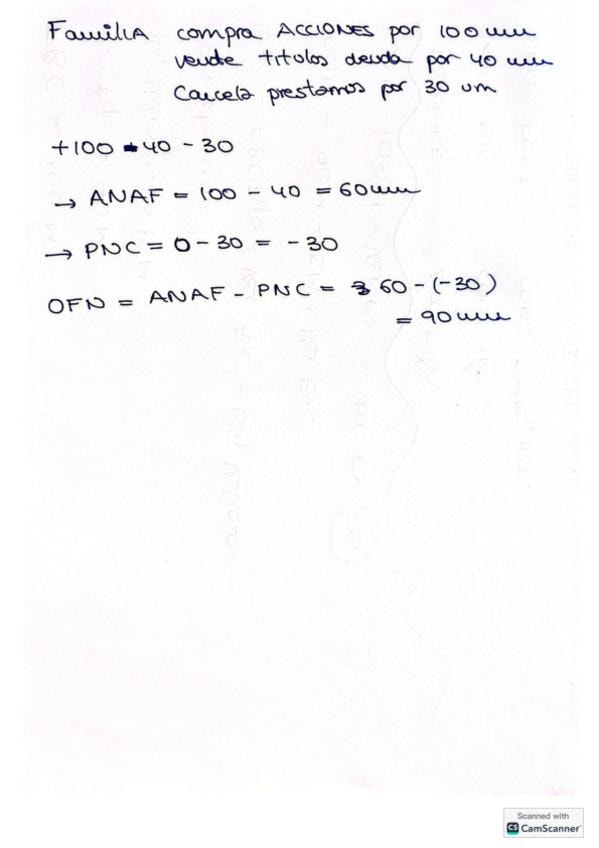 Familia compra ACCIONES por 100 um
vende titulos deuda por 40 um
Cancela prestamos por 30 um
+100 - 40 - 30
→ ANAF = 100 - 40 = 60 um
→ PNC = 0 - 30 = -30
OFN = ANAF - PNC = 60 - (-30)
= 90 um
Scanned with
CS CamScanner